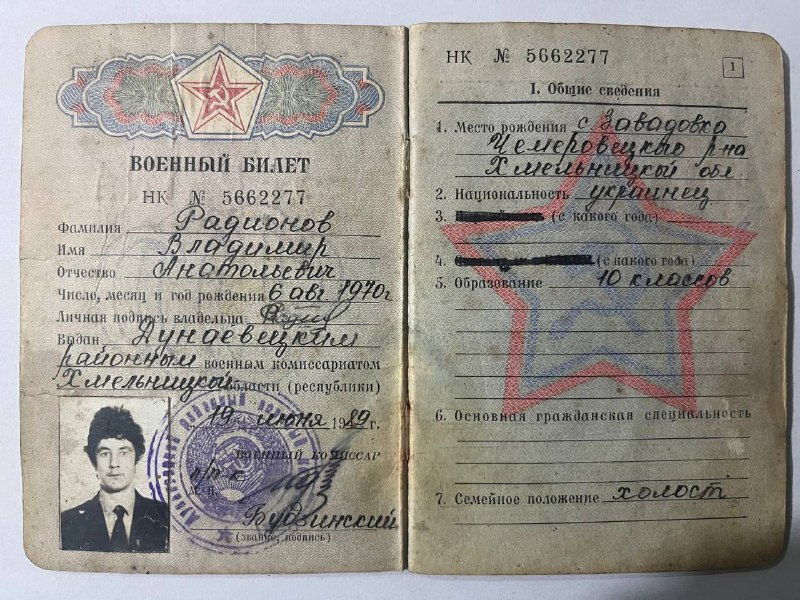 ВОЕННЫЙ БИЛЕТ
НК № 5662277
Фамилия Радионов
Имя Владимир
Отчество Анатольевич
Число, месяц и год рождения 6 авг 1970г
Личная подпись владельца
Выдан Дунаевецким
районным военным комиссариатом
Хмельницкой области (республики)
19 июня 1989 г.
ВОЕННЫЙ КОМИССАР
п/п-к
М.П.
Будзинский
(звание, подпись)
НК № 5662277
1
I. Общие сведения
1. Место рождения с Завадовка
Чемеровецкого р-на
Хмельницкой обл
2. Национальность украинец
3. (с какого года)
4. (с какого года)
5. Образование 10 классов
6. Основная гражданская специальность
7. Семейное положение холост